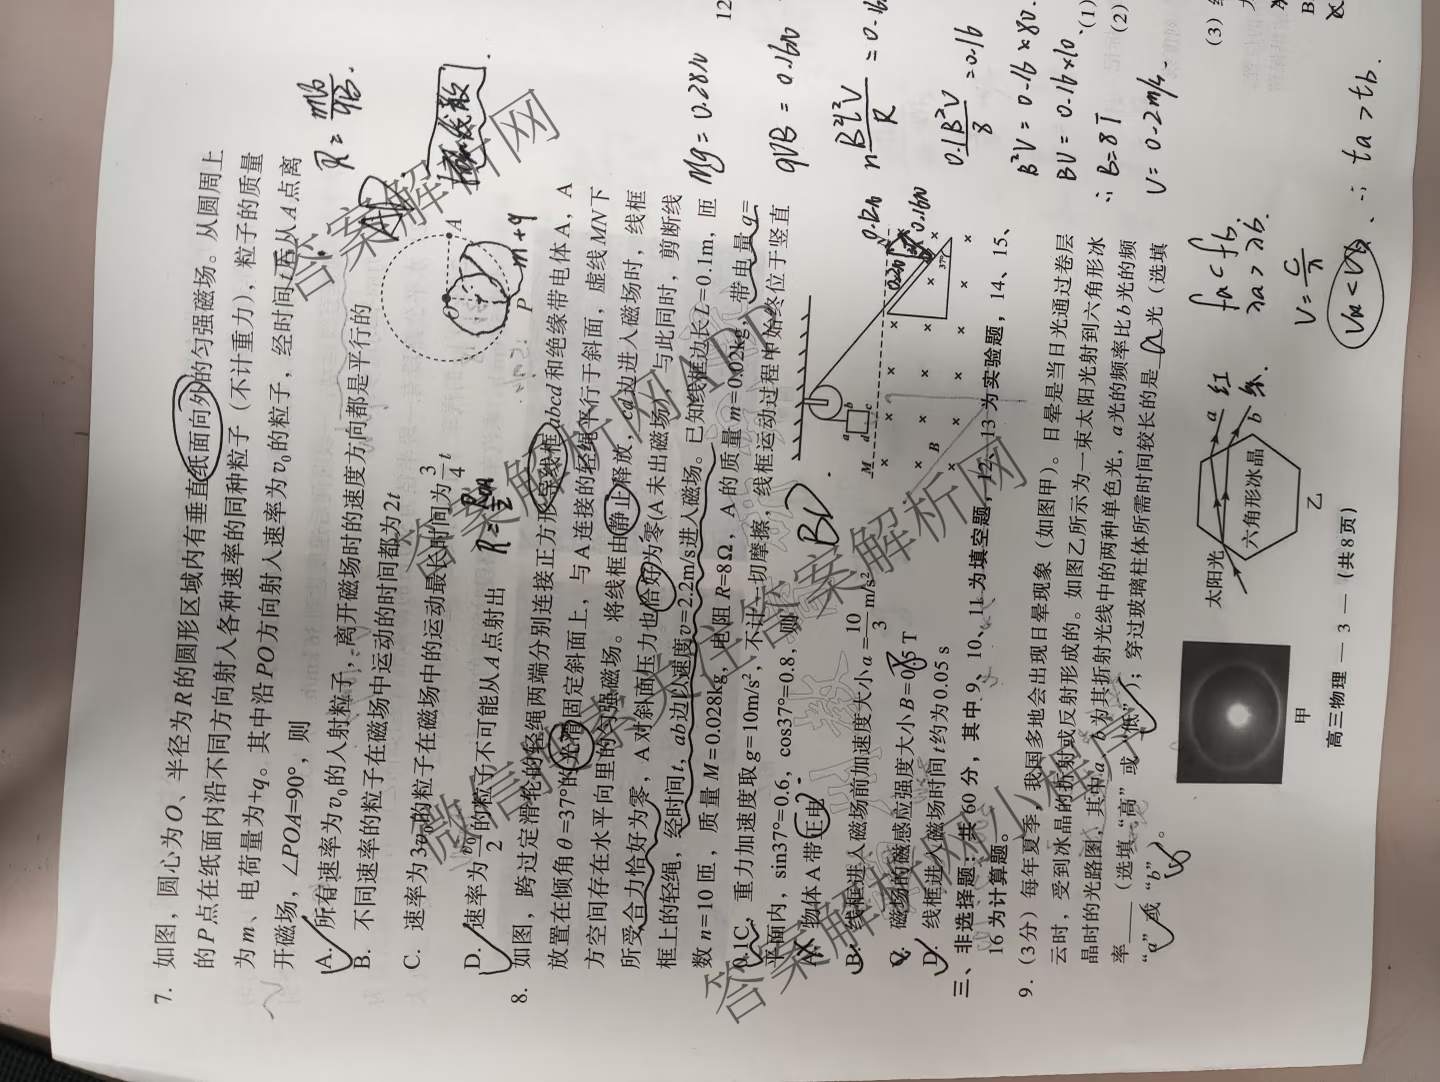 7. 如图，圆心为O、半径为R的圆形区域内有垂直纸面向外的匀强磁场。从圆周上
的P点在纸面内沿不同方向射入各种速率的同种粒子（不计重力），粒子的质量
为m、电荷量为+q。其中沿PO方向射入速率为v₀的粒子，经时间t后从A点离
开磁场，∠POA=90°，则
A. 所有速率为v₀的入射粒子，离开磁场时的速度方向都是平行的
B. 不同速率的粒子在磁场中运动的时间都为2t
C. 速率为3v₀的粒子在磁场中的运动最长时间为3/4 t
D. 速率为v₀/2的粒子不可能从A点射出
O
A
P
m+q
R=mv/qB.
8. 如图，跨过定滑轮的轻绳两端分别连接正方形导线框abcd和绝缘带电体A，A
放置在倾角θ=37°的光滑固定斜面上，与A连接的轻绳平行于斜面，虚线MN下
方空间存在水平向里的匀强磁场。将线框由静止释放，cd边进入磁场时，线框
所受合力恰好为零，A对斜面压力也恰好为零(A未出磁场)，与此同时，剪断线
框上的轻绳，经时间t，ab边以速度v=2.2m/s进入磁场。已知线框边长L=0.1m，匝
数n=10匝，质量M=0.028kg，电阻R=8Ω，A的质量m=0.02kg，带电量q=
0.1C，重力加速度取g=10m/s²，不计一切摩擦，线框运动过程中始终位于竖直
平面内，sin37°=0.6，cos37°=0.8，则
BD
A. 物体A带正电
B. 线框进入磁场前加速度大小a=10/3 m/s²
C. 磁场的磁感应强度大小B=0.5T
D. 线框进入磁场时间t约为0.05s
M
a
b
c
d
B
37°
0.12N
0.16N
Mg=0.28N
qVB=0.16N
nB²l²V/R=0.16
0.1B²V/8=0.16
B²V=0.16×80.
BV=0.16×10.
∴B=8T
V=0.2m/s.
三、非选择题：共60分，其中9、10、11为填空题，12、13为实验题，14、15、
16为计算题。
9.（3分）每年夏季，我国多地会出现日晕现象（如图甲）。日晕是当日光通过卷层
云时，受到冰晶的折射或反射形成的。如图乙所示为一束太阳光射到六角形冰
晶时的光路图，其中a、b为其折射光线中的两种单色光，a光的频率比b光的频
率____（选填“高”或“低”）；穿过玻璃柱体所需时间较长的是 a 光（选填
“a”或“b”）。
太阳光
六角形冰晶
a
红
b
紫.
甲
乙
fa<fb
λa>λb.
Va<Vb
∴ta>tb.
高三物理 — 3 —（共8页）
12
(1)
(2)
(3)
答案解析网
答案解析网APP
微信搜索关注答案解析网
答案解析网小程序